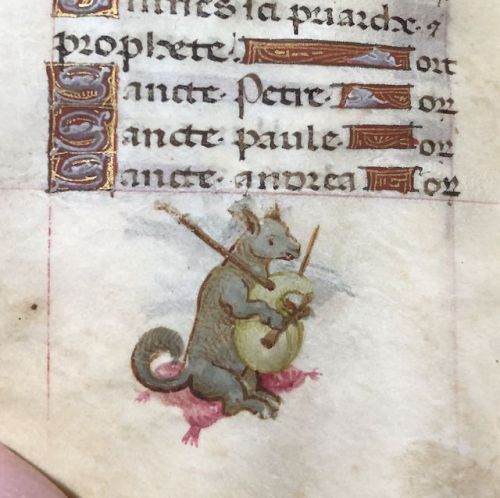 omnes sci priarche. ⁊
prophete. ort
Sancte. Petre. or
Sancte. paule. or
Sancte. andrea or